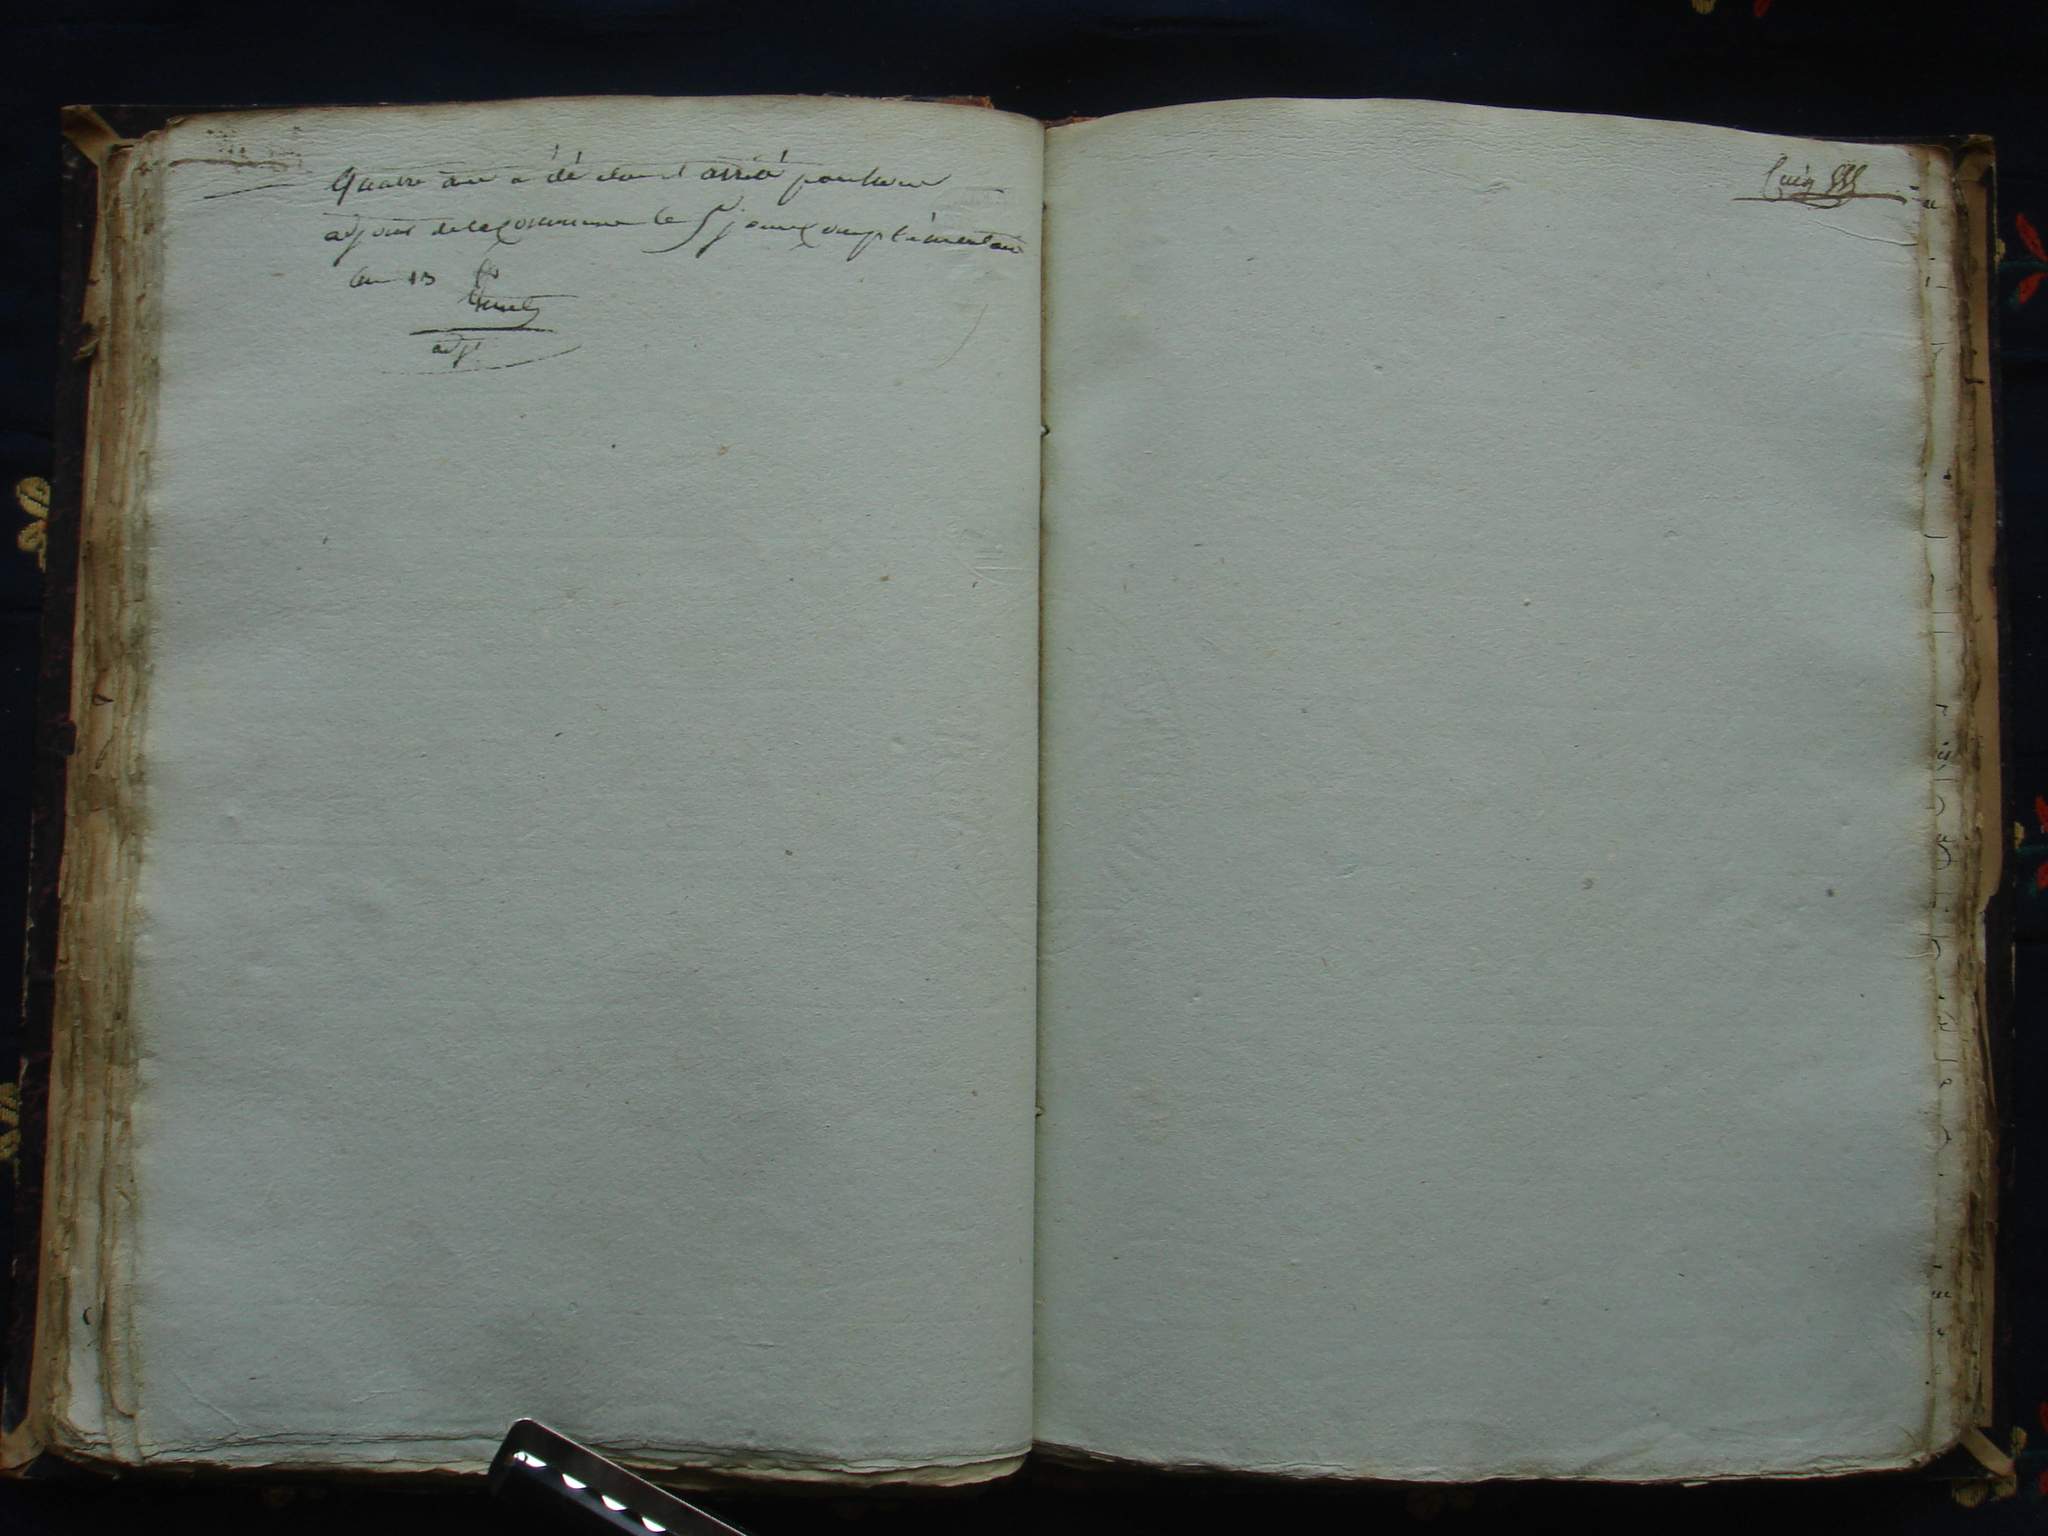 Quatre an a été clos et arrêté par Nous
adjoint de la commune le 5e jour complémentaire
an 13
adjt
Cinq